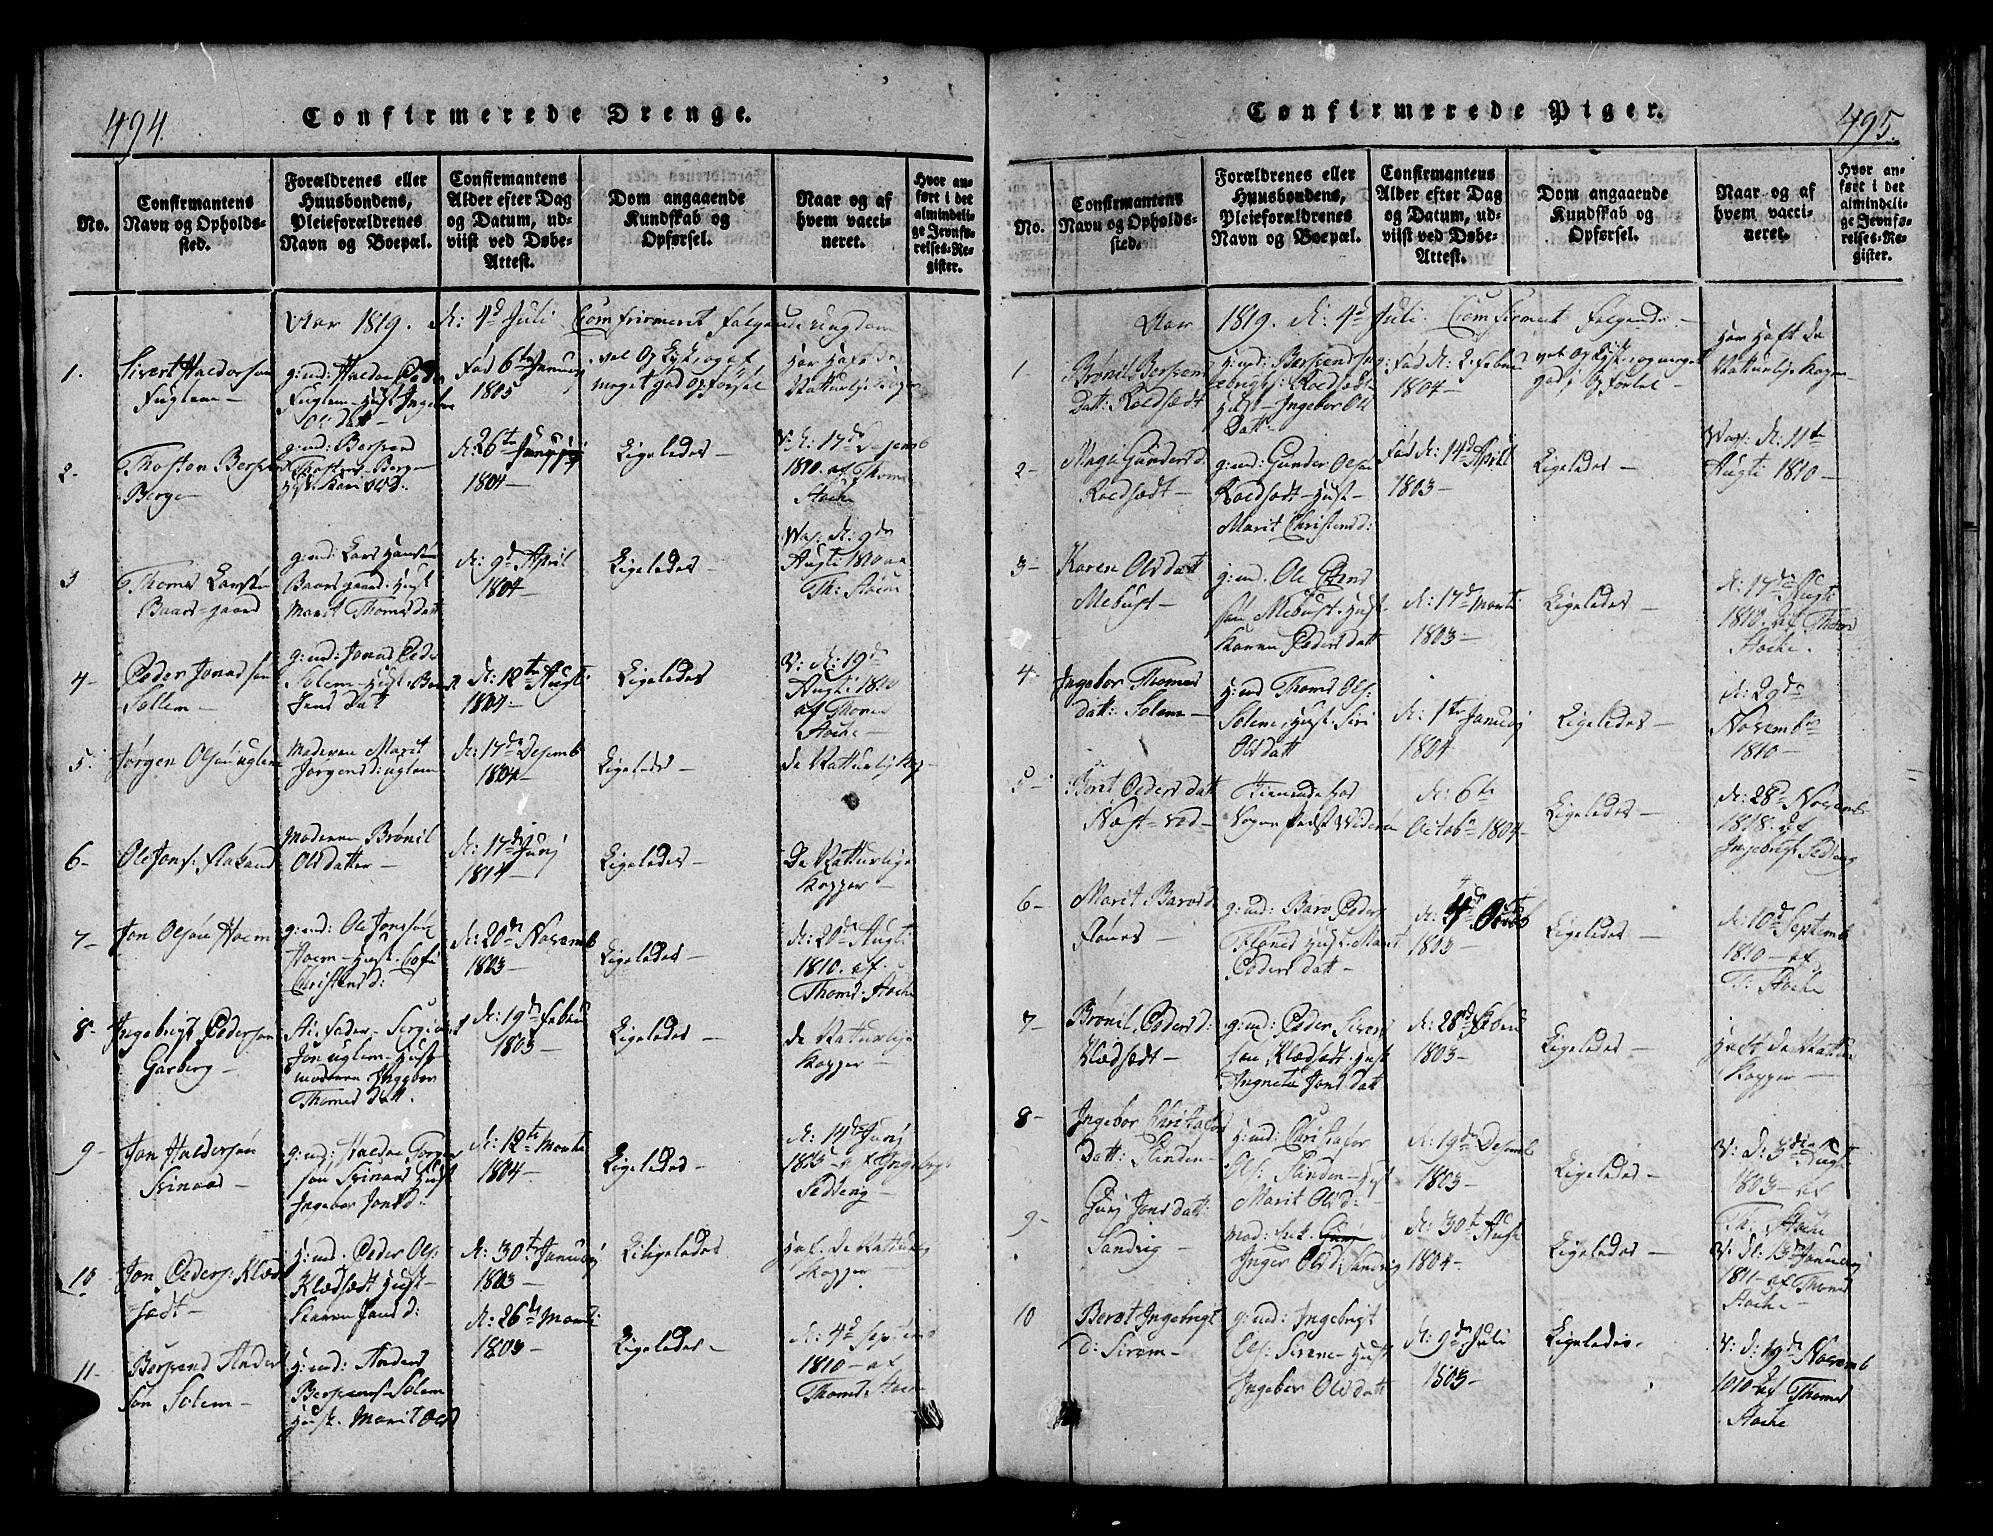 494.
Confirmerede Drenge.
No.
Confirmantens
Navn og Opholds-
sted.
Forældrenes eller
Huusbondens,
Pleieforældrenes
Navn og Boepæl.
Confirmantens
Alder efter Dag
og Datum, ud-
viist ved Døbe-
Attest.
Dom angaaende
Kundskab og
Opførsel.
Naar og af
hvem vacci-
neret.
Hvor an-
ført i det
almindeli-
ge Jevnfø-
relses-Re-
gister.
Aar 1819. d: 4d Juli Comfirmeret følgende ungdom
1.
Sivert Haldorsøn
Fuglem
g: md: Haldor Peder
Fuglem - Hust Ingebor
Ols dat
Fød 6te Januarj
1805
vel Oplyst, og af
meget god opførsel
Har Havt de
Natturlje Kopper
2.
Thoston Berspen
Berge
g: md: Berspen
Thostens: Berge
Hust: Kari
d: 26te
1804
Ligeledes
V: d: 17de Desemb
1810 af Thoms
Stoche
3
Thomes Larsøn
Baarsgaard
g: md: Lars Hansøn
Baarsgaard: Hust
Marit Thomesdatt
d: 9d April
1804
Ligeledes
Vag. d: 9de
Augti 1810 av
Th: Støem
4-
Peder Jonassøn
Sollem
g: md: Jonas Peder
Solem - Hust: Berit
Jens Dat
d: 12te Augti
1804
Ligeledes
V: d: 19de
Augti 1810
af Thomes
Stoche
5
Jørgen Olsøn uglem
Moderen Marit
Jørgens d: uglem
d: 17de Desemb
1804
Ligeledes
de Natturlje Kop
6-
Ole Jons: Aasand
Moderen Brønil
Olsdatter
d: 17de Junj
1804
Ligeledes
De Natturlige
Kopper
7-
Jon Olsøn Hoem
g: md: Ole Jonssøn
Hoem - Hust: Cofi
Christens d:
d: 20de Novemb
1803
Ligeledes
d: 20de Augti
1810. af.
Thoms: Stoche
8-
Ingebrigt Pedersøn
Garberg
Sti-fader - Sergiant
Jon uglem - Hust
moderen Ingebor
Thomes datt.
d: 19de Febru
1803
Ligeledes
de Natturlije
Kopper
9-
Jon Haldorsøn
Svinaas
g: md: Haldor Torger
søn Svinaas Hust
Ingebor Jons d:
d: 12te Marti
1804
Ligeledes
d: 14de Junj
1803 af Ingebrigt
Sedseng
10
Jon Peders: Klæd
sødt
g: md: Peder Ols:
Klædsødt Hust
Karen Jans d:
d: 30te Januarj
1803
Ligeledes
Hat. de Natturlig
Kopper
11-
Berspend Anders
søn Solem
g: md: Anders
Berspens: Solem
Hust. Marit Ols
d: 26de Marti
1803
Ligeledes
d: 4d Septemb
1810 - af
Thoms:
Confirmerede Piger.
495.
No.
Confirmantens
Navn og Opholds-
sted.
Forældrenes eller
Huusbondens,
Pleieforældrenes
Navn og Boepæl.
Confirmantens
Alder efter Dag
og Datum, ud-
viist ved Døbe-
Attest.
Dom angaaende
Kundskab og
Opførsel.
Naar og af
hvem vacci-
neret.
Hvor an-
ført i det
almindeli-
ge Jevnfø-
relses-Re-
gister.
Aar 1819. d: 4d Juli Comfirmert følgende
1
Brønil Berspens
Datt: Roldsædt
g: md: Berspend Ing
ebrigts: Roldsædt
Hust - Ingebor Ols
Datt
Fød d: 2 Februa
1804
vel Oplyst, og meget
godt Opførsel
Har Haft de
Natturlije Kopper
2-
Magli Gunders d:
Roldsædt
g: md: Gunder Olsøn
Roldsødt - Hust
Marit Christens d:
Fød d: 14d April
1803
Ligeledes
Vag. d: 11te
Augti 1810
3-
Karen Olsdatt
Mebust
g: md. Ole Peders
søn Mebust. Hust.
Karen Peders datt
d: 17de Marti
1803
Ligeledes
d: 17de Augti
1810. af Thoms
Stoche.
4-
Ingebor Thomes
datt: Solem
g: md Thoms Ols:
Solem, Hust: Siri
Olsdatt
d: 1te Januarj
1804
Ligeledes
d: 29de
Novembr
1810
5-
Berit Peders datt
Næst-vod
Tienende hos
Sogne Præst Widerøe
d: 6te
Octobr 1804
Ligeledes
d: 28de Novemb
1818. af
Ingebrigt Sedseng
6-
Marit Baros d.
Rønes
g: md: Baro Peders
Rønes Hust: Marit
Peders datt
d: 4d Octob
1803
Ligeledes
d: 10d Septemb
1810 - af
T: Stoche
7-
Brønil Peders d:
Klædsødt
g: md: Peder Sivert
søn Klædsødt. Hust
Ingneta Jons datt
d: 28de Febru
1803
Ligeledes
Haft de Nattur
Kopper
8-
Ingebor Christafers
Datt: Slinden
g: md: Christafer
Ols: Slinden - Hust
Marit Ols d:
d: 19de Desemb
1803
Ligeledes
V: d: 3die Augti
1803 - af
Th. Stoche
9-
Gurj Jons datt:
Sandvig
mod: Enk:
Inger Ols d Sandvig
d: 30te Augti
1804
Ligeledes
V: d: 13de Januarj
1811 - af Thoms
Stoche
10
Berot Ingebrigt
d: Sirem
g: md: Ingebrigt
Ols: Sirem - Hust
Ingebor Ols datt
d: 9de Juli
1803
Ligeledes.
V: d: 19de Novemb
1810 af Thomes
Stoche